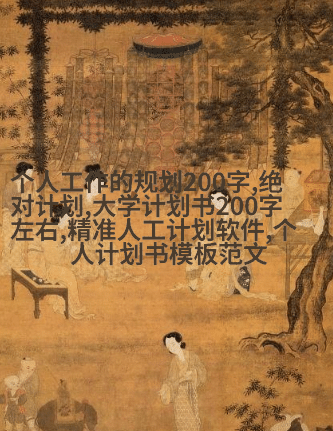 个人工作的规划200字,绝
对计划,大学计划书200字
左右,精准人工计划软件,个
人计划书模板范文